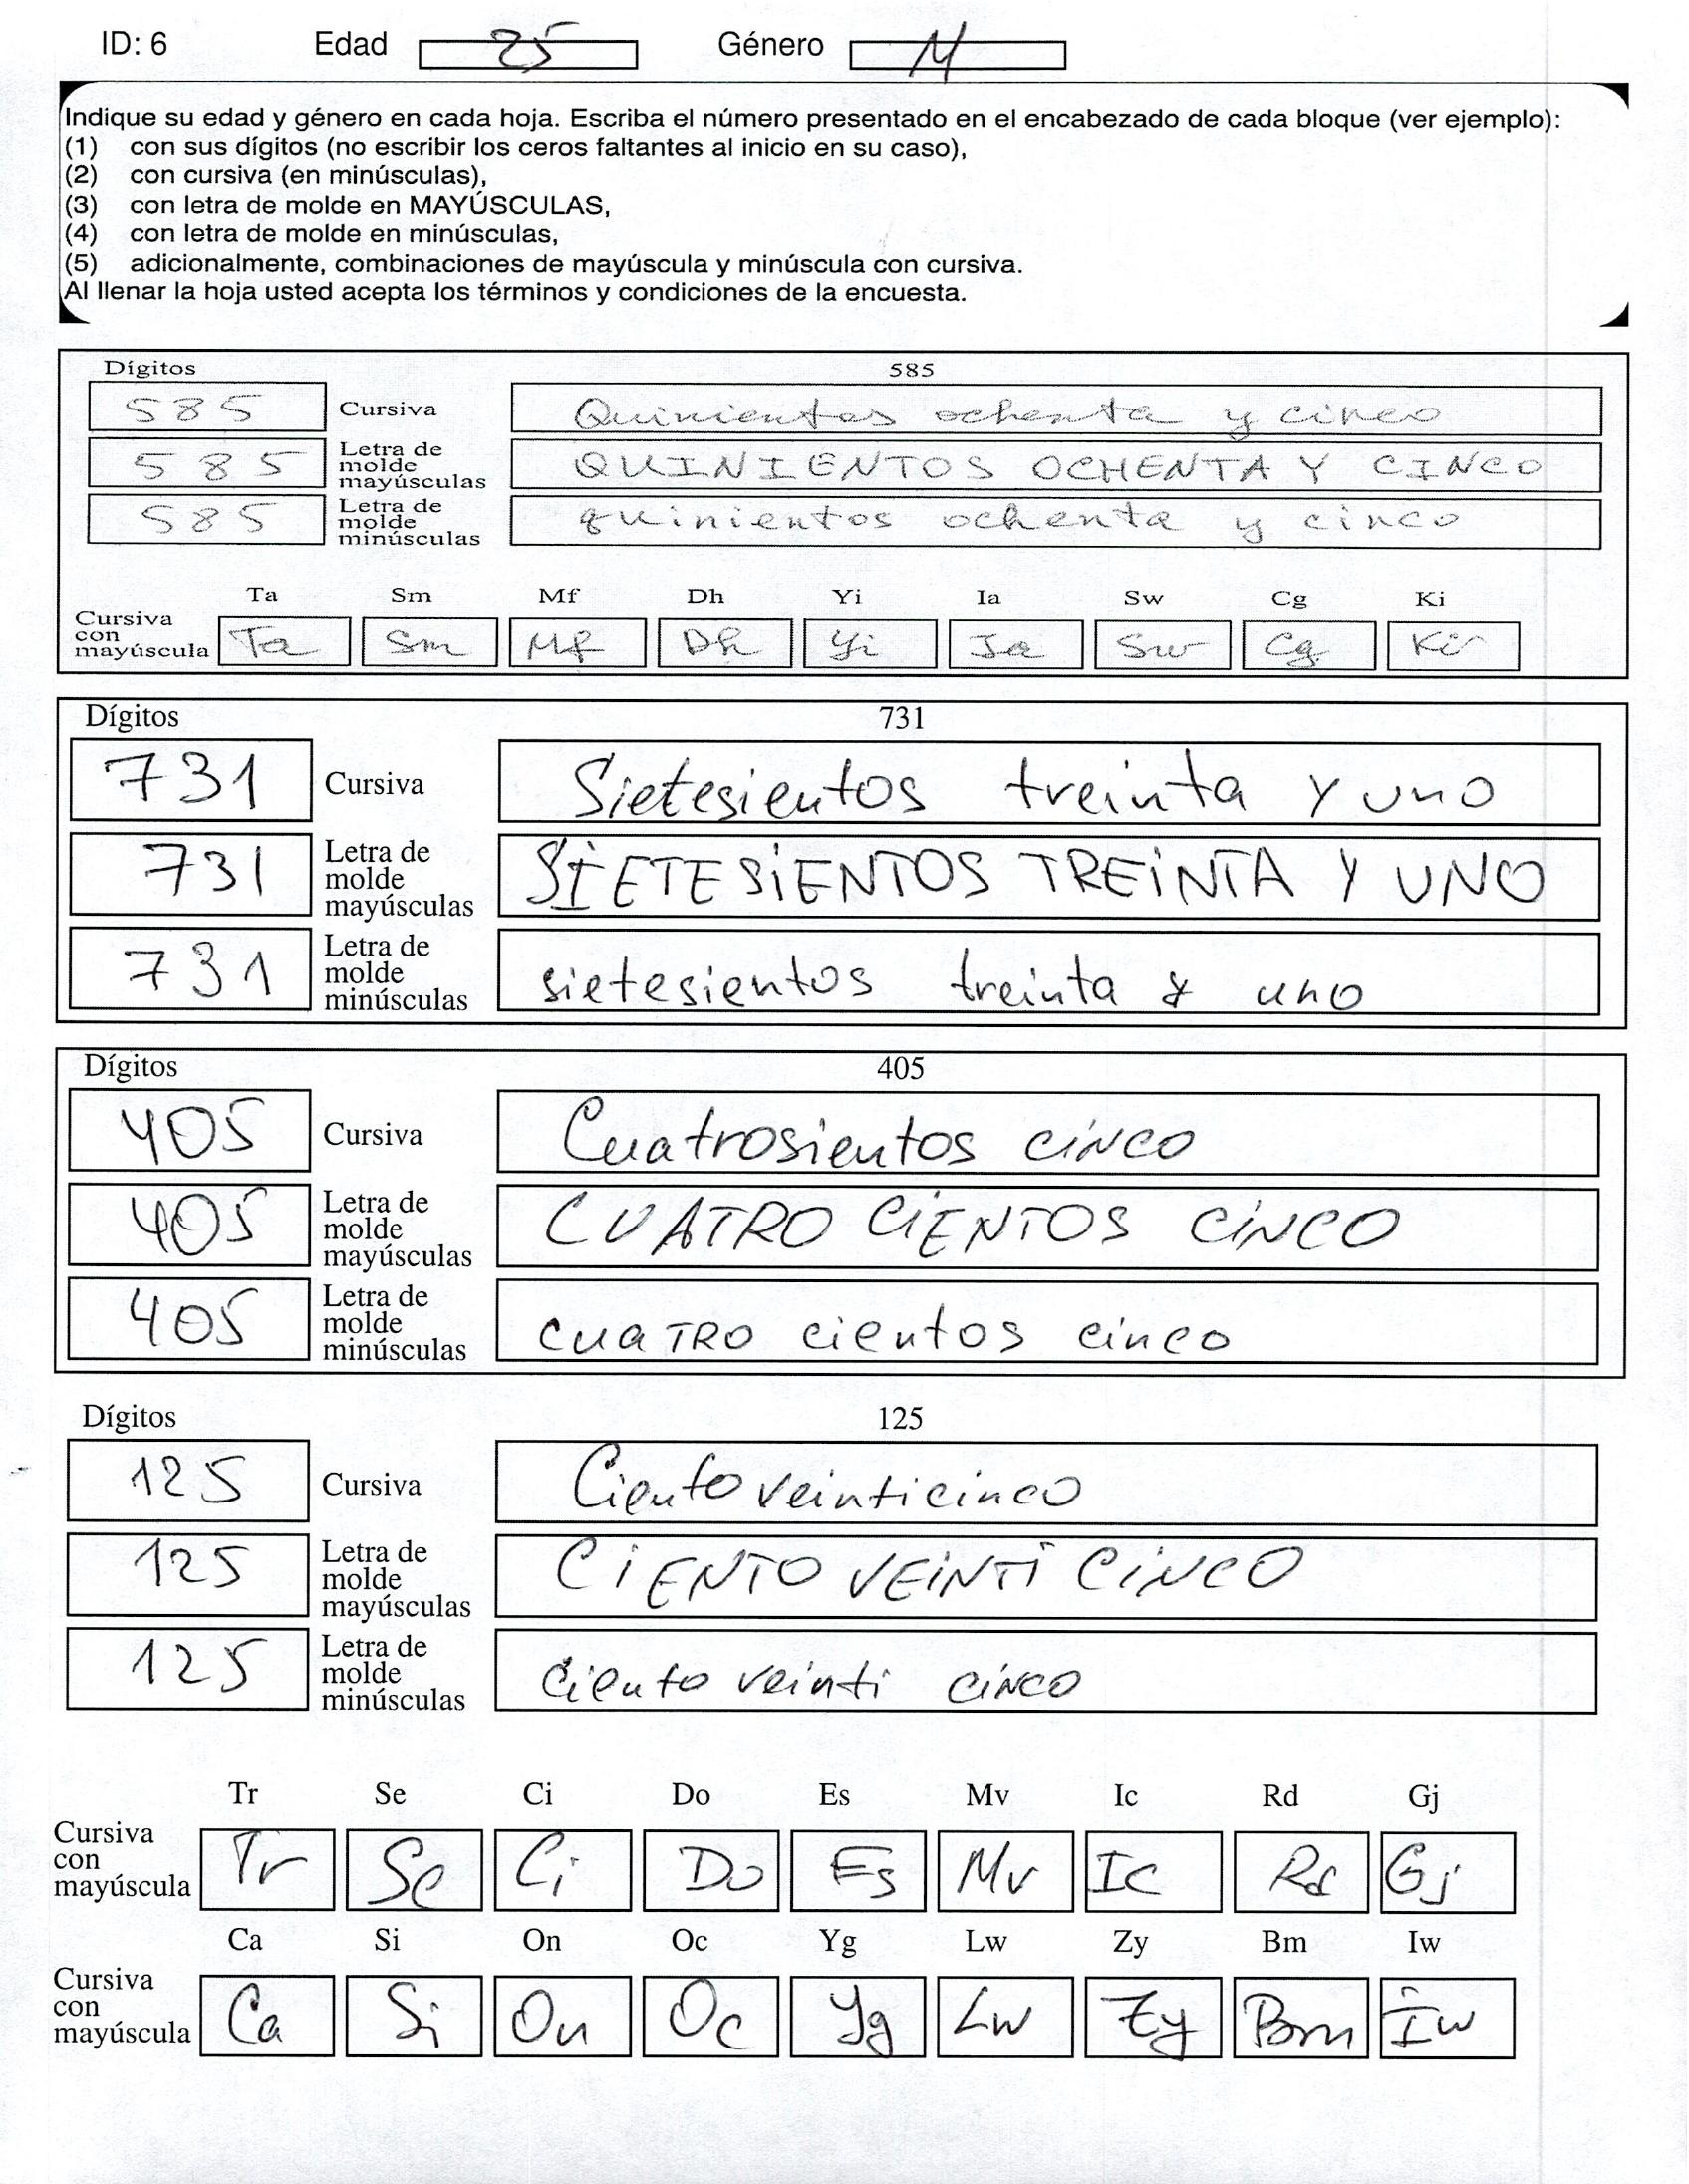 ID: 6 Edad 25 Género M
Indique su edad y género en cada hoja. Escriba el número presentado en el encabezado de cada bloque (ver ejemplo):
(1) con sus dígitos (no escribir los ceros faltantes al inicio en su caso),
(2) con cursiva (en minúsculas),
(3) con letra de molde en MAYÚSCULAS,
(4) con letra de molde en minúsculas,
(5) adicionalmente, combinaciones de mayúscula y minúscula con cursiva.
Al llenar la hoja usted acepta los términos y condiciones de la encuesta.
Dígitos 585
585 Cursiva Quinientos ochenta y cinco
585 Letra de molde mayúsculas QUINIENTOS OCHENTA Y CINCO
585 Letra de molde minúsculas quinientos ochenta y cinco
Ta Sm Mf Dh Yi Ia Sw Cg Ki
Cursiva con mayúscula Ta Sm Mf Dh Yi Ia Sw Cg Ki
Dígitos 731
731 Cursiva Sietesientos treinta y uno
731 Letra de molde mayúsculas SIETESIENTOS TREINTA Y UNO
731 Letra de molde minúsculas sietesientos treinta y uno
Dígitos 405
405 Cursiva Cuatrosientos cinco
405 Letra de molde mayúsculas CUATRO CIENTOS CINCO
405 Letra de molde minúsculas cuaTRO cientos cinco
Dígitos 125
125 Cursiva Ciento veinticinco
125 Letra de molde mayúsculas CIENTO VEINTI CINCO
125 Letra de molde minúsculas ciento veinti cinco
Tr Se Ci Do Es Mv Ic Rd Gj
Cursiva con mayúscula Tr Se Ci Do Es Mv Ic Rd Gj
Ca Si On Oc Yg Lw Zy Bm Iw
Cursiva con mayúscula Ca Si On Oc Yg Lw Zy Bm Iw